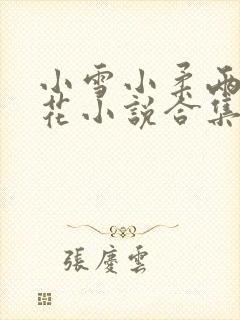 小雪小柔兩
花小說合集
張慶雲